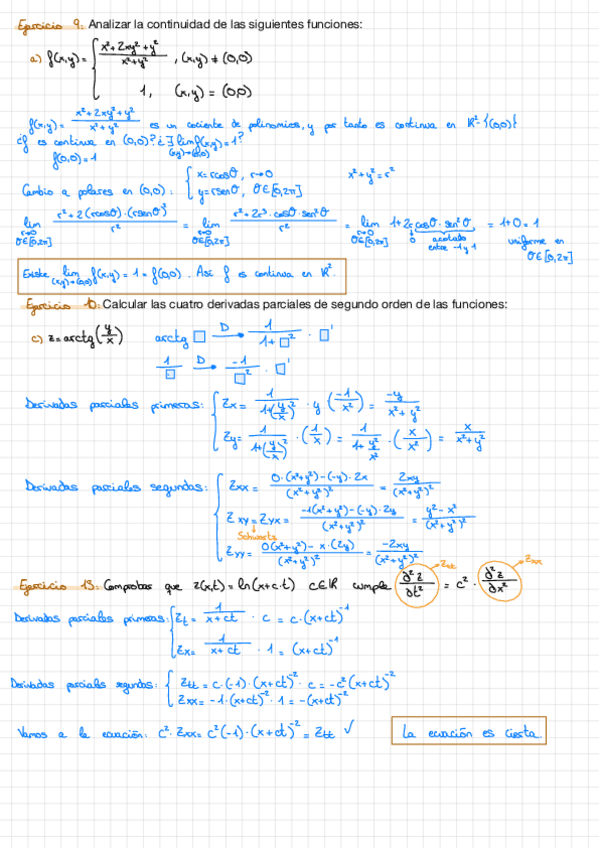 Ejercicio 9: Analizar la continuidad de las siguientes funciones:
a) f(x,y) = { (x²+2xy²+y²)/(x²+y²) , (x,y) ≠ (0,0)
1, (x,y) = (0,0)
f(x,y) = (x²+2xy²+y²)/(x²+y²) es un cociente de polinomios, y por tanto es continua en ℝ²-{(0,0)}
¿f es continua en (0,0)? ¿∃ lim f(x,y) = 1?
(x,y)→(0,0)
f(0,0) = 1
Cambio a polares en (0,0): { x = rcosθ, r→0 x²+y² = r²
y = rsenθ, θ∈[0,2π]
lim (r²+2(rcosθ)·(rsenθ)²)/r² = lim (r²+2r³·cosθ·sen²θ)/r² = lim 1+2r cosθ·sen²θ = 1+0 = 1
r→0 r→0 r→0 0 acotado uniforme en
θ∈[0,2π] θ∈[0,2π] θ∈[0,2π] entre -1 y 1 θ∈[0,2π]
Existe lim f(x,y) = 1 = f(0,0). Así f es continua en ℝ²
(x,y)→(0,0)
Ejercicio 10: Calcular las cuatro derivadas parciales de segundo orden de las funciones:
c) z = arctg(y/x) arctg □ D→ 1/(1+□²) · □'
1/□ D→ -1/□² · □'
Derivadas parciales primeras: { Zx = 1/(1+(y/x)²) · y (-1/x²) = -y/(x²+y²)
Zy = 1/(1+(y/x)²) · (1/x) = 1/(1+y²/x²) · (x/x²) = x/(x²+y²)
Derivadas parciales segundas: { Zxx = (0·(x²+y²)-(-y)·2x)/(x²+y²)² = 2xy/(x²+y²)²
Zxy = Zyx = (-1(x²+y²)-(-y)·2y)/(x²+y²)² = (y²-x²)/(x²+y²)²
Schwartz
Zyy = (0(x²+y²)-x·(2y))/(x²+y²)² = -2xy/(x²+y²)²
Ejercicio 13: Comprobar que z(x,t) = ln(x+c·t) c∈ℝ cumple ∂²z/∂t² = c² · ∂²z/∂x²
Ztt Zxx
Derivadas parciales primeras: { Zt = 1/(x+ct) · c = c·(x+ct)⁻¹
Zx = 1/(x+ct) · 1 = (x+ct)⁻¹
Derivadas parciales segundas: { Ztt = c·(-1)·(x+ct)⁻²·c = -c²(x+ct)⁻²
Zxx = -1·(x+ct)⁻²·1 = -(x+ct)⁻²
Vamos a la ecuación: c²·Zxx = c²(-1)·(x+ct)⁻² = Ztt ✓ La ecuación es cierta.